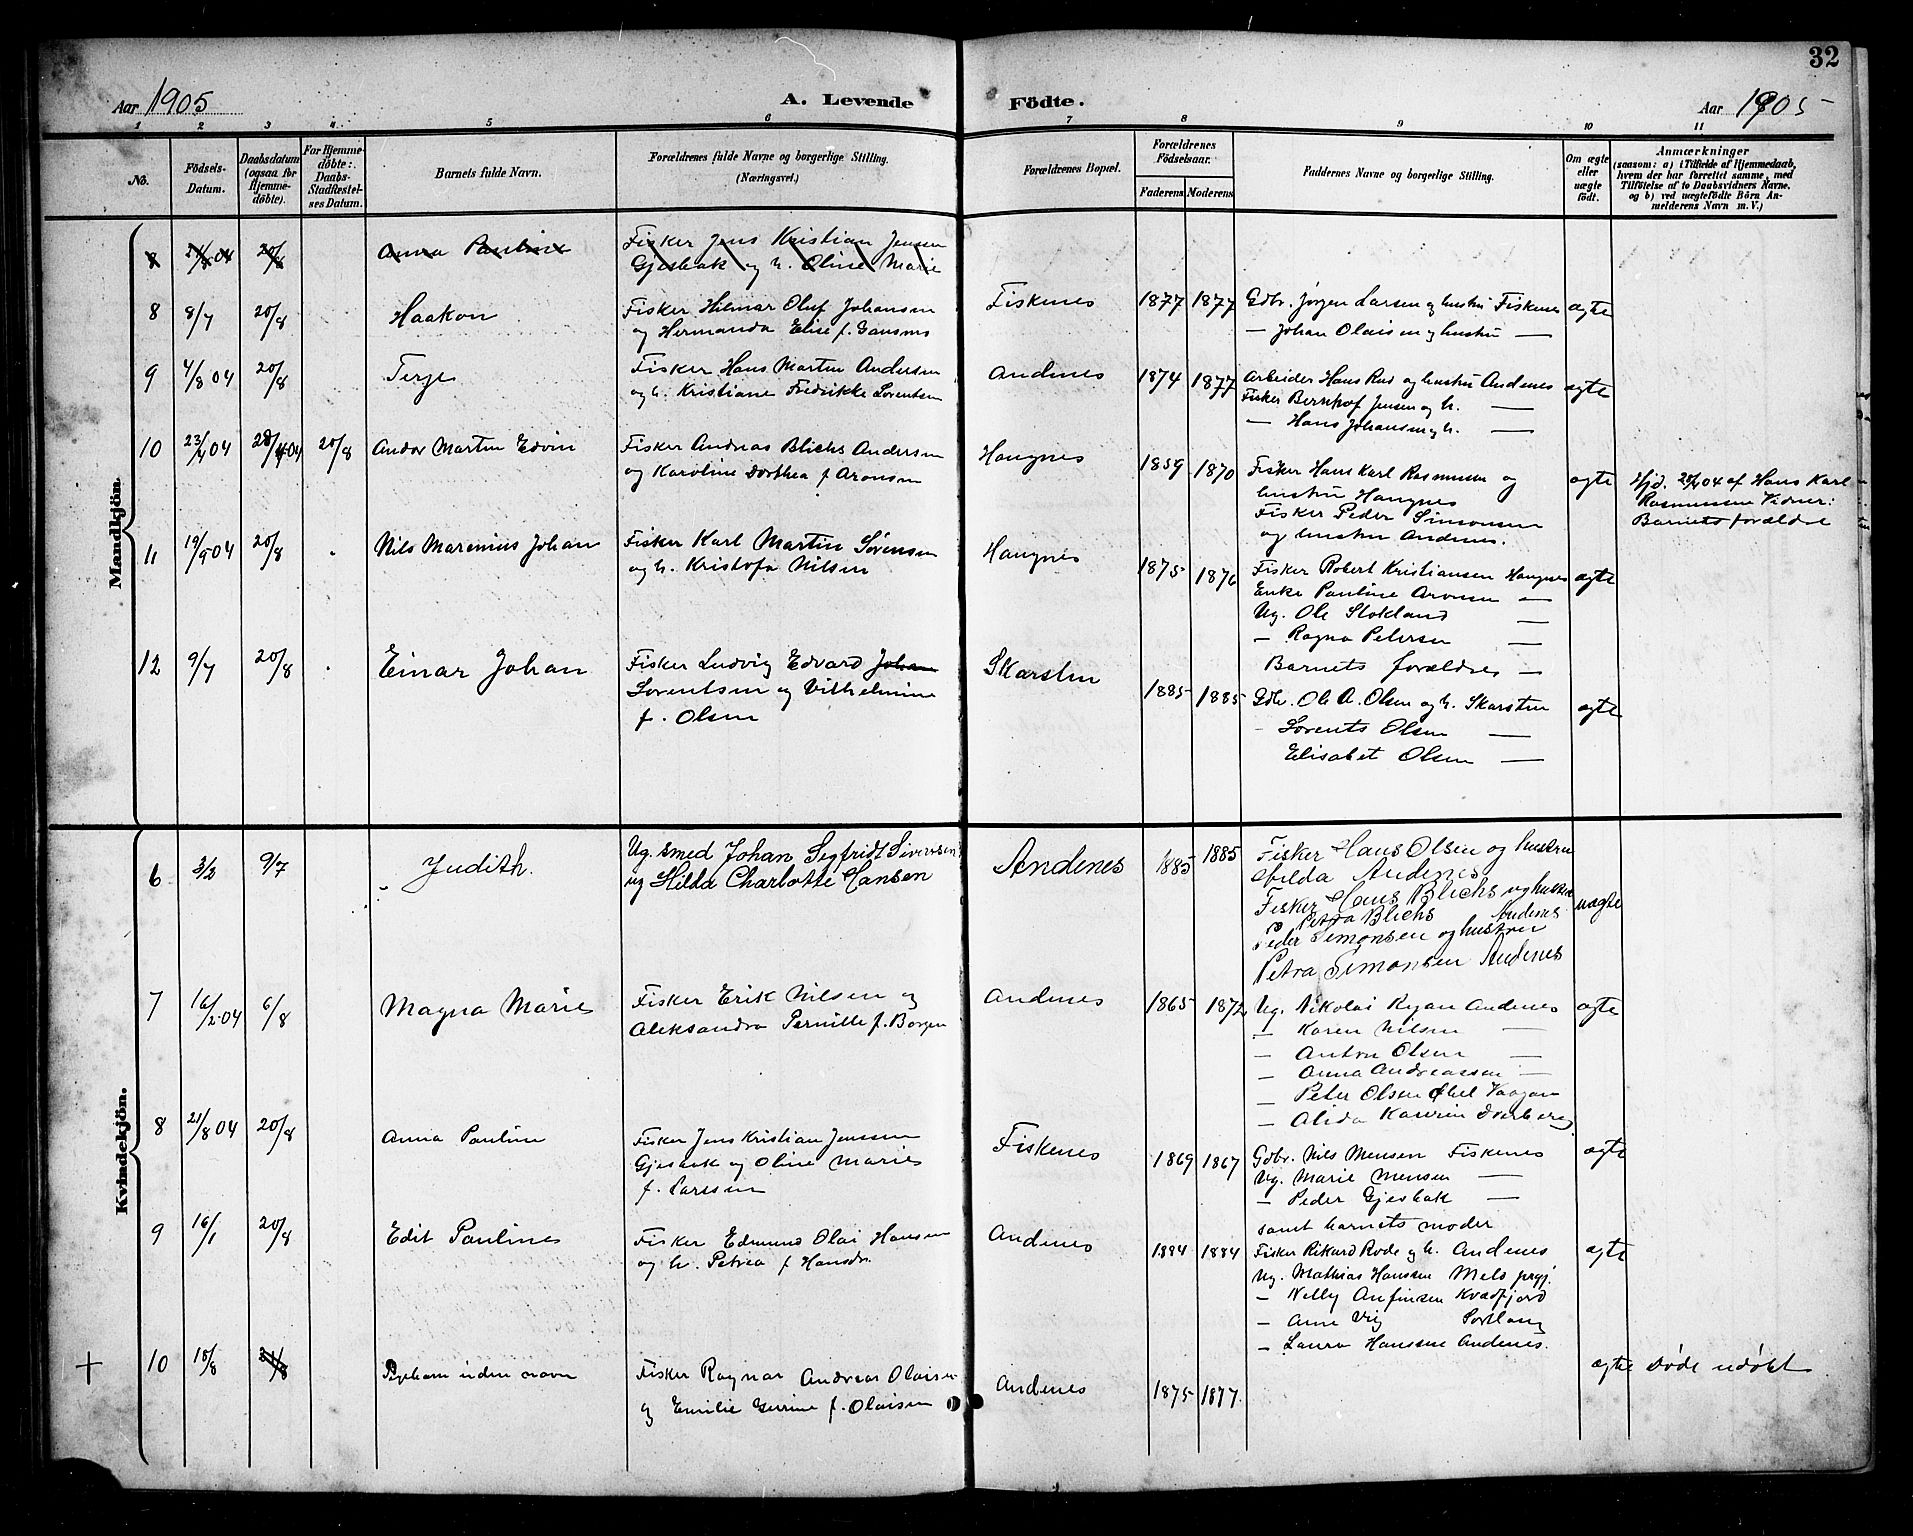 32
Aar 1905
A. Levende Födte.
Aar 1905
1 2 3 4 5 6 7 8 9 10 11
No.
Födsels-Datum.
Daabsdatum (ogsaa for Hjemme-döbte).
For Hjemme-döbte: Daabs-Stadfæstel-ses Datum.
Barnets fulde Navn.
Forældrenes fulde Navne og borgerlige Stilling. (Næringsvei.)
Forældrenes Bopæl.
Forældrenes Födselsaar.
Faderens Moderens
Faddernes Navne og borgerlige Stilling.
Om ægte eller uægte födt.
Anmærkninger
(saasom: a) i Tilfælde af Hjemmedaab, hvem der har forrettet samme, med Tilföielse af to Daabsvidners Navne, og b) ved uægtefödte Börn An-melderens Navn m. V.)
Mandkjön.
8 21/8 04 20/8 Anna Pauline Fisker Jens Kristian Jensen
Gjesbak og h. Oline Marie
8 8/7 20/8 Haakon Fisker Hilmar Oluf Johansen
og Hermanda Elise f.
Fiskenes 1877 1877 Gdbr. Jørgen Larsen og hustru Fiskenes ægte
— Johan Olaisen og hustru —
9 4/8 04 20/8 Terje Fisker Hans Martin Andersen
og h. Kristiane Fredrikke Lorentsen
Andenes 1874 1877 Arbeider Hans Rud og hustru Andenes ægte
Fisker Bernhof Jensen og h. —
— Hans Johansen og h. —
10 23/4 04 28/4 04 20/8 Andor Martin Edvin Fisker Andreas Blichs Andersen
og Karoline Dorthea f. Aronsen
Haugnes 1859 1870 Fisker Hans Karl Rasmussen og
hustru Haugnes
Fisker Peder Simonsen
og hustru Andenes.
ægte Hjd. 28/4 04 af Hans Karl
Rasmussen Vidner:
Barnets forældre
11 19/9 04 20/8 Nils Marenius Johan Fisker Karl Martin Sørensen
og h. Kristofa Nilsen
Haugnes 1875 1876 Fisker Robert Kristiansen Haugnes ægte
Enke Pauline Aronsen —
Ug. Ole Stokland —
— Ragna Petersen —
Barnets forældre —
12 9/7 20/8 Einar Johan Fisker Ludvig Edvard Johan
Lorentsen og Vilhelmine
f. Olsen
Skarsten 1885 1885 Gdbr. Ole A. Olsen og h. Skarsten ægte
— Lorents Olsen —
Elisabet Olsen —
Kvindekjön.
6 3/2 9/7 Judith. Ug. smed Johan Segfridt Sivertsen
og Hilda Charlotte Hansen
Andenes 1885 1885 Fisker Hans Olsen og hustru
Hilda Andenes
Fisker Hans Blichs og hustru
Petra Blichs Andenes
Peder Simonsen og hustru
Petra Simonsen Andenes
uægte
7 16/2 04 6/8 Magna Marie Fisker Erik Nilsen og
Aleksandra Pernille f. Borgen
Andenes 1865 1872 Ug. Nikolai Ryan Andenes ægte
— Karen Nilsen —
— Anton Olsen —
— Anna Andreassen —
— Peter Olsen Vaagan
— Alida
8 21/8 04 20/8 Anna Pauline Fisker Jens Kristian Jenssen
Gjesbak og Oline Marie
f. Larssen
Fiskenes 1869 1867 Gdbr. Nils Mensen Fiskenes ægte
Ug. Marie Mensen —
— Peder Gjesbak —
samt barnets moder
9 16/1 20/8 Edit Pauline Fisker Edmund Olai Hansen
og h. Petrea f. Hansdr.
Andenes 1884 1884 Fisker Rikard Rode og h. Andenes ægte
Ug. Mathias Hanssen Mels prgj.
— Nelly Anfinsen Kvædfjord
— Anne Vig Sortland
— Laura Hanssen Andenes.
+ 10 18/8 Pigebarn uden navn Fisker Ragnar Andreas Olaisen
og Emilie f. Olaisen
Andenes 1875 1877. ægte Døde udøbt